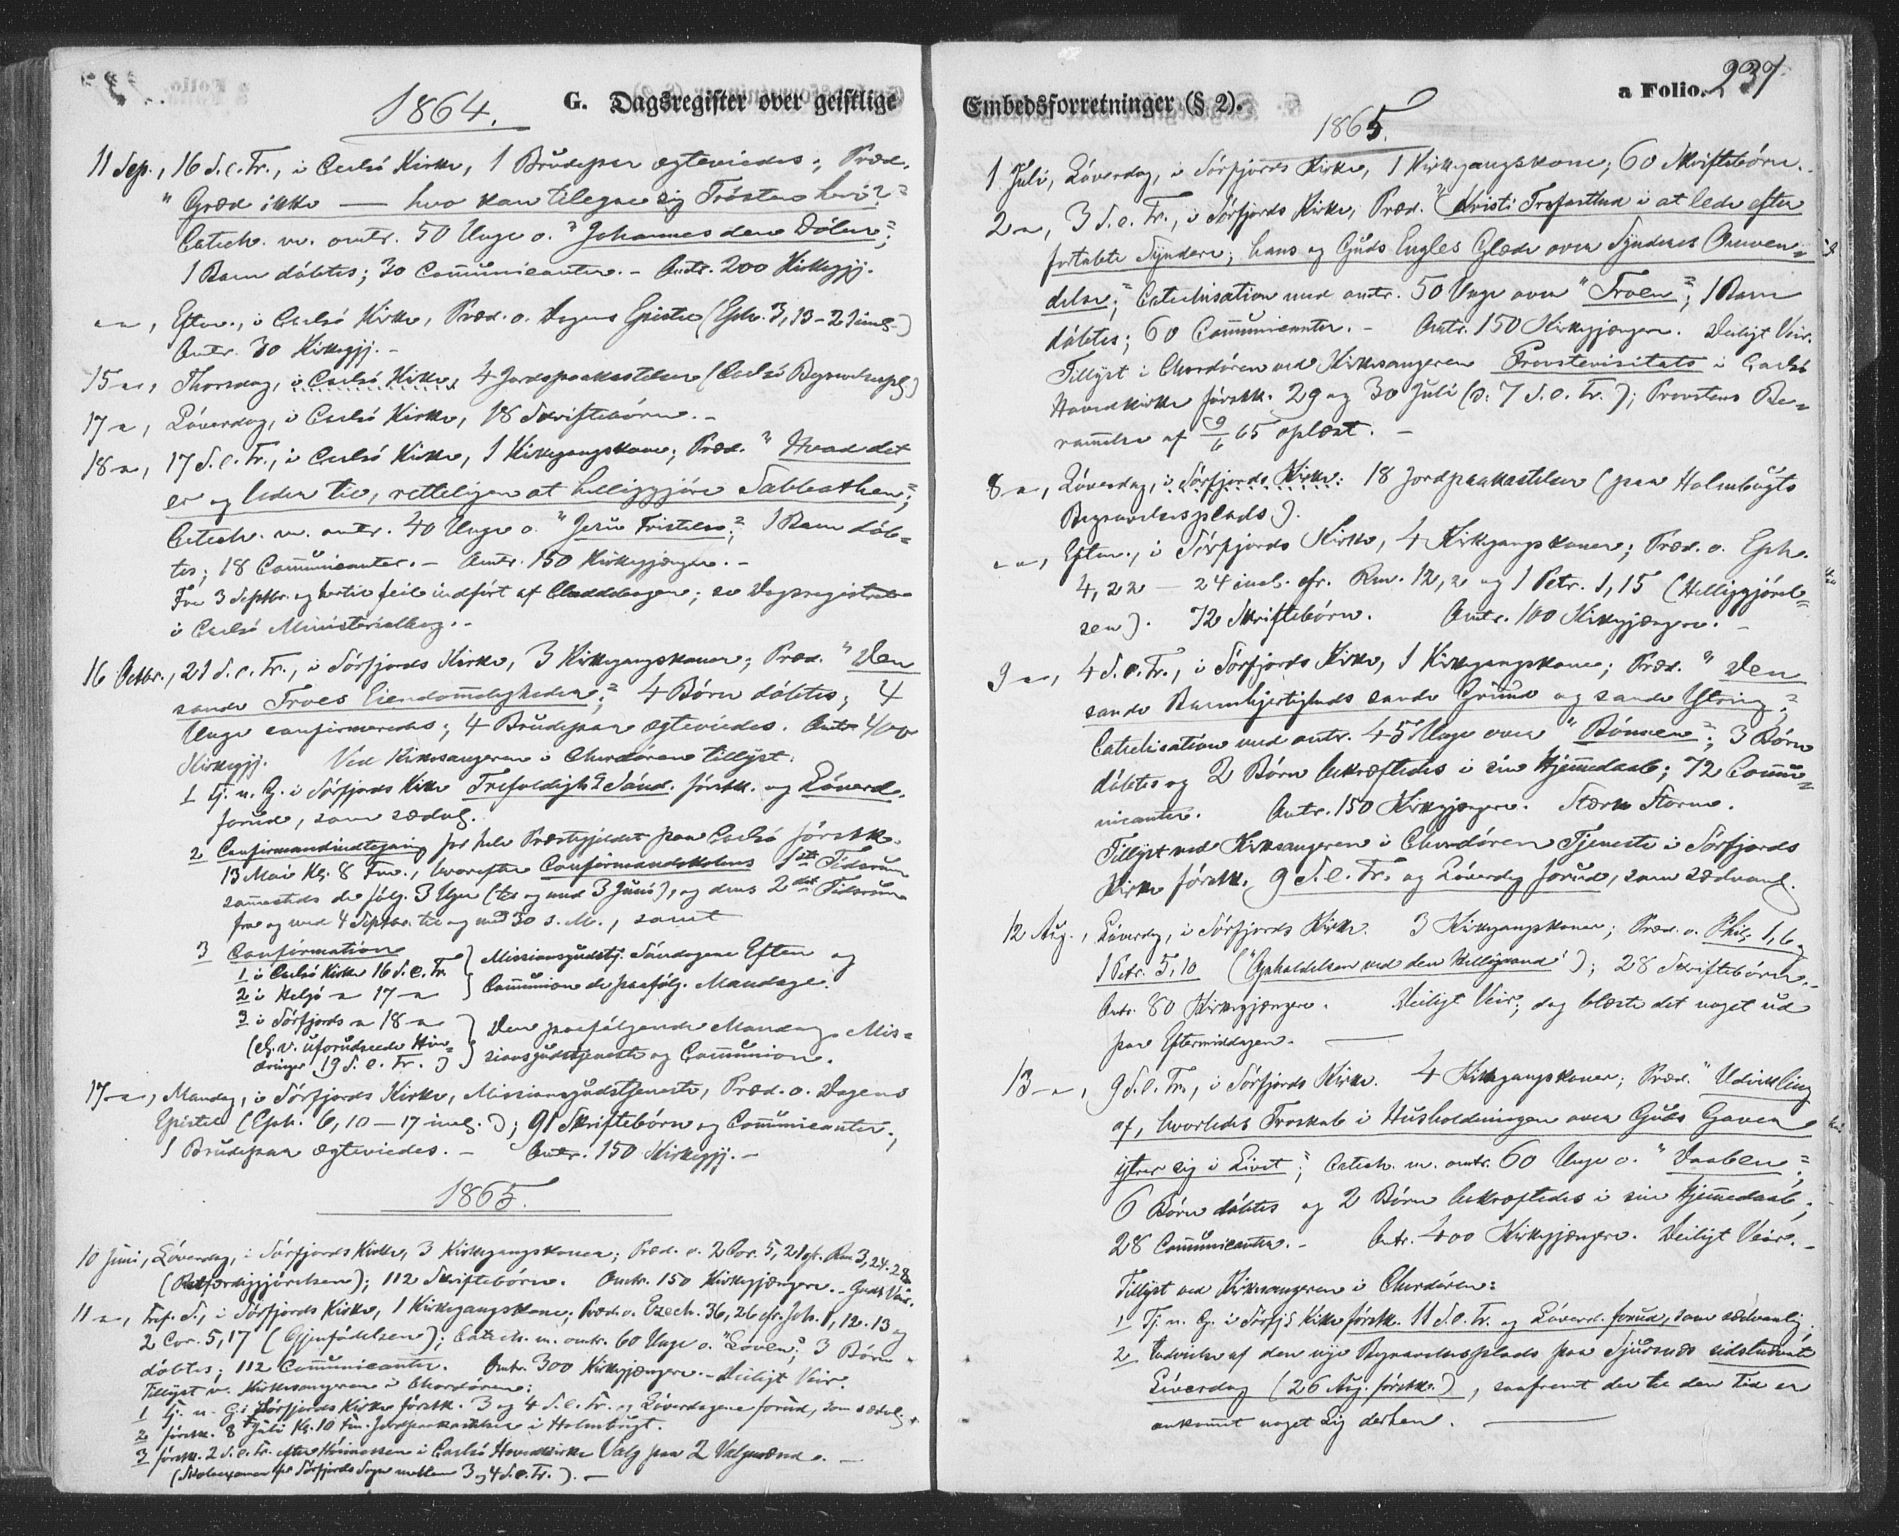 1864. G. Dagsregister over geistlige
11 Sep., 16 S.e.Tr., i Carlsö Kirke, 1 Brudepar ægteviedes; Præd.
"Græd ikke — hvo kan tilegne sig Trösten heri?"
Catech. m. omtr. 50 Unge o. "Johannes den Döber";
1 Barn döbtes; 30 Communicanter. - Omtr. 200 Kirkegjg.
— " —, Efterm., i Carlsö Kirke, Præd. o. Dagens Epistel (Eph. 3, 13-21 incl.)
Omtr. 30 Kirkegjg. -
15 — " —, Thorsdag, i Carlsö Kirke, 4 Jordspaakastelser (Carlsö Begravelsespl.)
17 — " —, Löverdag, i Carlsö Kirke, 18 Skriftebörn. -
18 — " —, 17 S.e.Tr., i Carlsö Kirke, 1 Kirkegangskone; Præd. "Hvad det
er og leder til, retteligen at helliggjöre Sabbathen";
Catech. m. omtr. 40 Unge o. "Jesu Fristelse"; 1 Barn döb-
tes; 18 Communicanter. - Omtr. 150 Kirkegjængere. -
Fra 3 Septbr. og hertil feil indfört af Claddebogen; se Dagsregisteret
i Carlsö Ministerialbog. -
16 Octbr., 21 S.e.Tr., i Sörfjords Kirke, 3 Kirkegangskoner; Præd. "Den
sande Troes Eiendommeligheder"; 4 Börn döbtes; 4
Unge confirmeredes; 4 Brudepar ægteviedes. Omtr. 400
Kirkegjg. Ved Kirkesangeren i Chordören tillyst:
1 Tj. n. G. i Sörfjords Kirke Trefoldigh.s Sönd. förstk. og Löverd.
forud, som sædvl.
2 Confirmandindtegning for hele Præstegjeldet paa Carlsö förstk.
13 Mai Kl. 8 Fm., hvorefter Confirmandskolens 1ste Tidsrum
sammesteds de fölg. 3 Uger (til og med 3 Juni), og dens 2det Tidsrum
fra og med 4 Septbr. til og med 30 s. M., samt
3 Confirmation
1 i Carlsö Kirke 16 S.e.Tr. } Missionsgudstj. Söndagens Efterm og
2 i Helgö — " — 17 — " — } Communion de paafölg. Mandage.
3 i Sörfjords — " — 18 — " — } Den paafölgende Mandag Mis-
(el. v. uforudseede Hin- } sionsgudstjeneste og Communion.
dringer 19 S.e.Tr.)
17 — " —, Mandag, i Sörfjords Kirke, Missionsgudstjeneste, Præd. o. Dagens
Epistel (Eph. 6, 10 — 17 incl.); 91 Skriftebörn og Communicanter;
1 Brudepar ægteviedes. - Omtr. 150 Kirkegjg. -
1865.
10 Juni, Löverdag, i Sörfjords Kirke, 3 Kirkegangskoner; Præd. o. 2 Cor. 5, 21 cfr. Rom 3, 24. 28
(Retfærdiggjörelsen); 112 Skriftebörn. Omtr. 150 Kirkegjængere. - Godt Veir.
11 — " —, Tref. S., i Sörfjords Kirke, 1 Kirkegangskone; Præd. o. Ezech. 36, 26 cfr. Joh. 1, 12. 13 og
2 Cor. 5, 17 (Gjenfödelsen); Catech. m. omtr. 60 Unge o. "Loven"; 3 Börn
döbtes; 112 Communicanter. Omtr. 300 Kirkegjængere. - Deiligt Veir.
Tillyst v. Kirkesangeren i Chordören:
1 Tj. n. G. i Sörfjords Kirke förstk. 3 og 4 S.e.Tr. og Löverdagene forud, som sædvl.
2 förstk. 8 Juli Kl. 10 Fm. Jordpaakastelse i Holmbugt.
3 förstk. 2 S.e.Tr. efter Höimessen i Carlsö Hovedkirke Valg paa 2 Valgmænd. -
(Skoleexamen for Sörfjords Sogn mellem 3 og 4 S.e.Tr.). -
Embedsforretninger (§ 2). a Folio. 237
1865.
1 Juli, Löverdag, i Sörfjords Kirke, 1 Kirkegangskone; 60 Skriftebörn. -
2 — " —, 3 S.e.Tr., i Sörfjords Kirke, Præd. "Christi Trofasthed i at lede efter
fortabte Syndere; hans og Guds Engles Glæde over Synderes Omven-
delse"; Catechisation med omtr. 50 Unge over "Troen"; 1 Barn
döbtes; 60 Communicanter. - Omtr. 150 Kirkegjængere. Deiligt Veir.
Tillyst i Chordören ved Kirkesangeren Provstevisitats i Carlsö
Hovedkirke förstk. 29 og 30 Juli (o: 7 S.e.Tr.); Provstens Be-
rammelse af 9/6 65 oplæst. -
8 — " —, Löverdag, i Sörfjords Kirke: 18 Jordpaakastelser (paa Holmbugts
Begravelsesplads).
— " —, Efterm., i Sörfjords Kirke, 4 Kirkegangskoner; Præd. o. Eph.
4, 22 — 24 incl. cfr. Rom. 12, 2 og 1 Petr. 1, 15 (Helliggjörel-
sen). 72 Skriftebörn. Omtr. 100 Kirkegjængere. -
9 — " —, 4 S.e.Tr., i Sörfjords Kirke, 1 Kirkegangskone; Præd. "Den
sande Barmhjertigheds sande Grund og sande Yttring";
Catechisation med omtr. 45 Unge over "Bönnen"; 3 Börn
döbtes og 2 Börn bekræftedes i sin Hjemmedaab; 72 Commu-
nicanter. Omtr. 150 Kirkegjængere. Stærk Storm.
Tillyst ved Kirkesangeren i Chordören Tjeneste i Sörfjords
Kirke förstk. 9 S.e.Tr. og Löverdag forud, som sædvanl.
12 Aug., Löverdag, i Sörfjords Kirke. 3 Kirkegangskoner; Præd. o. Phil. 1, 6 og
1 Petr. 5, 10 ("Opholdelsen ved den Helligaand"); 28 Skriftebörn. -
Omtr. 80 Kirkegjængere. Deiligt Veir; dog blæste det noget ud
paa Eftermiddagen. —
13 — " —, 9 S.e.Tr., i Sörfjords Kirke. 4 Kirkegangskoner; Præd. "Udvikling
af, hvorledes Troskab i Husholdningen over Guds Gaver
yttrer sig i Livet"; Catech. m. omtr. 60 Unge o. "Daaben";
6 Börn döbtes og 2 Börn bekræftedes i sin Hjemmedaab;
28 Communicanter. - Omtr. 400 Kirkegjængere. Deiligt Veir. -
Tillyst ved Kirkesangeren i Chordören:
1 Tj. n. G. i Sörfj.s Kirke förstk. 11 S.e.Tr. og Löverd. forud, som sædvanlig.
2 Indvielse af den nye Begravelsesplads paa Sjursnes sidstnævnt
Löverdag (26 Aug. förstk.), saafremt der til den Tid er
ankommet noget Lig derhen. —